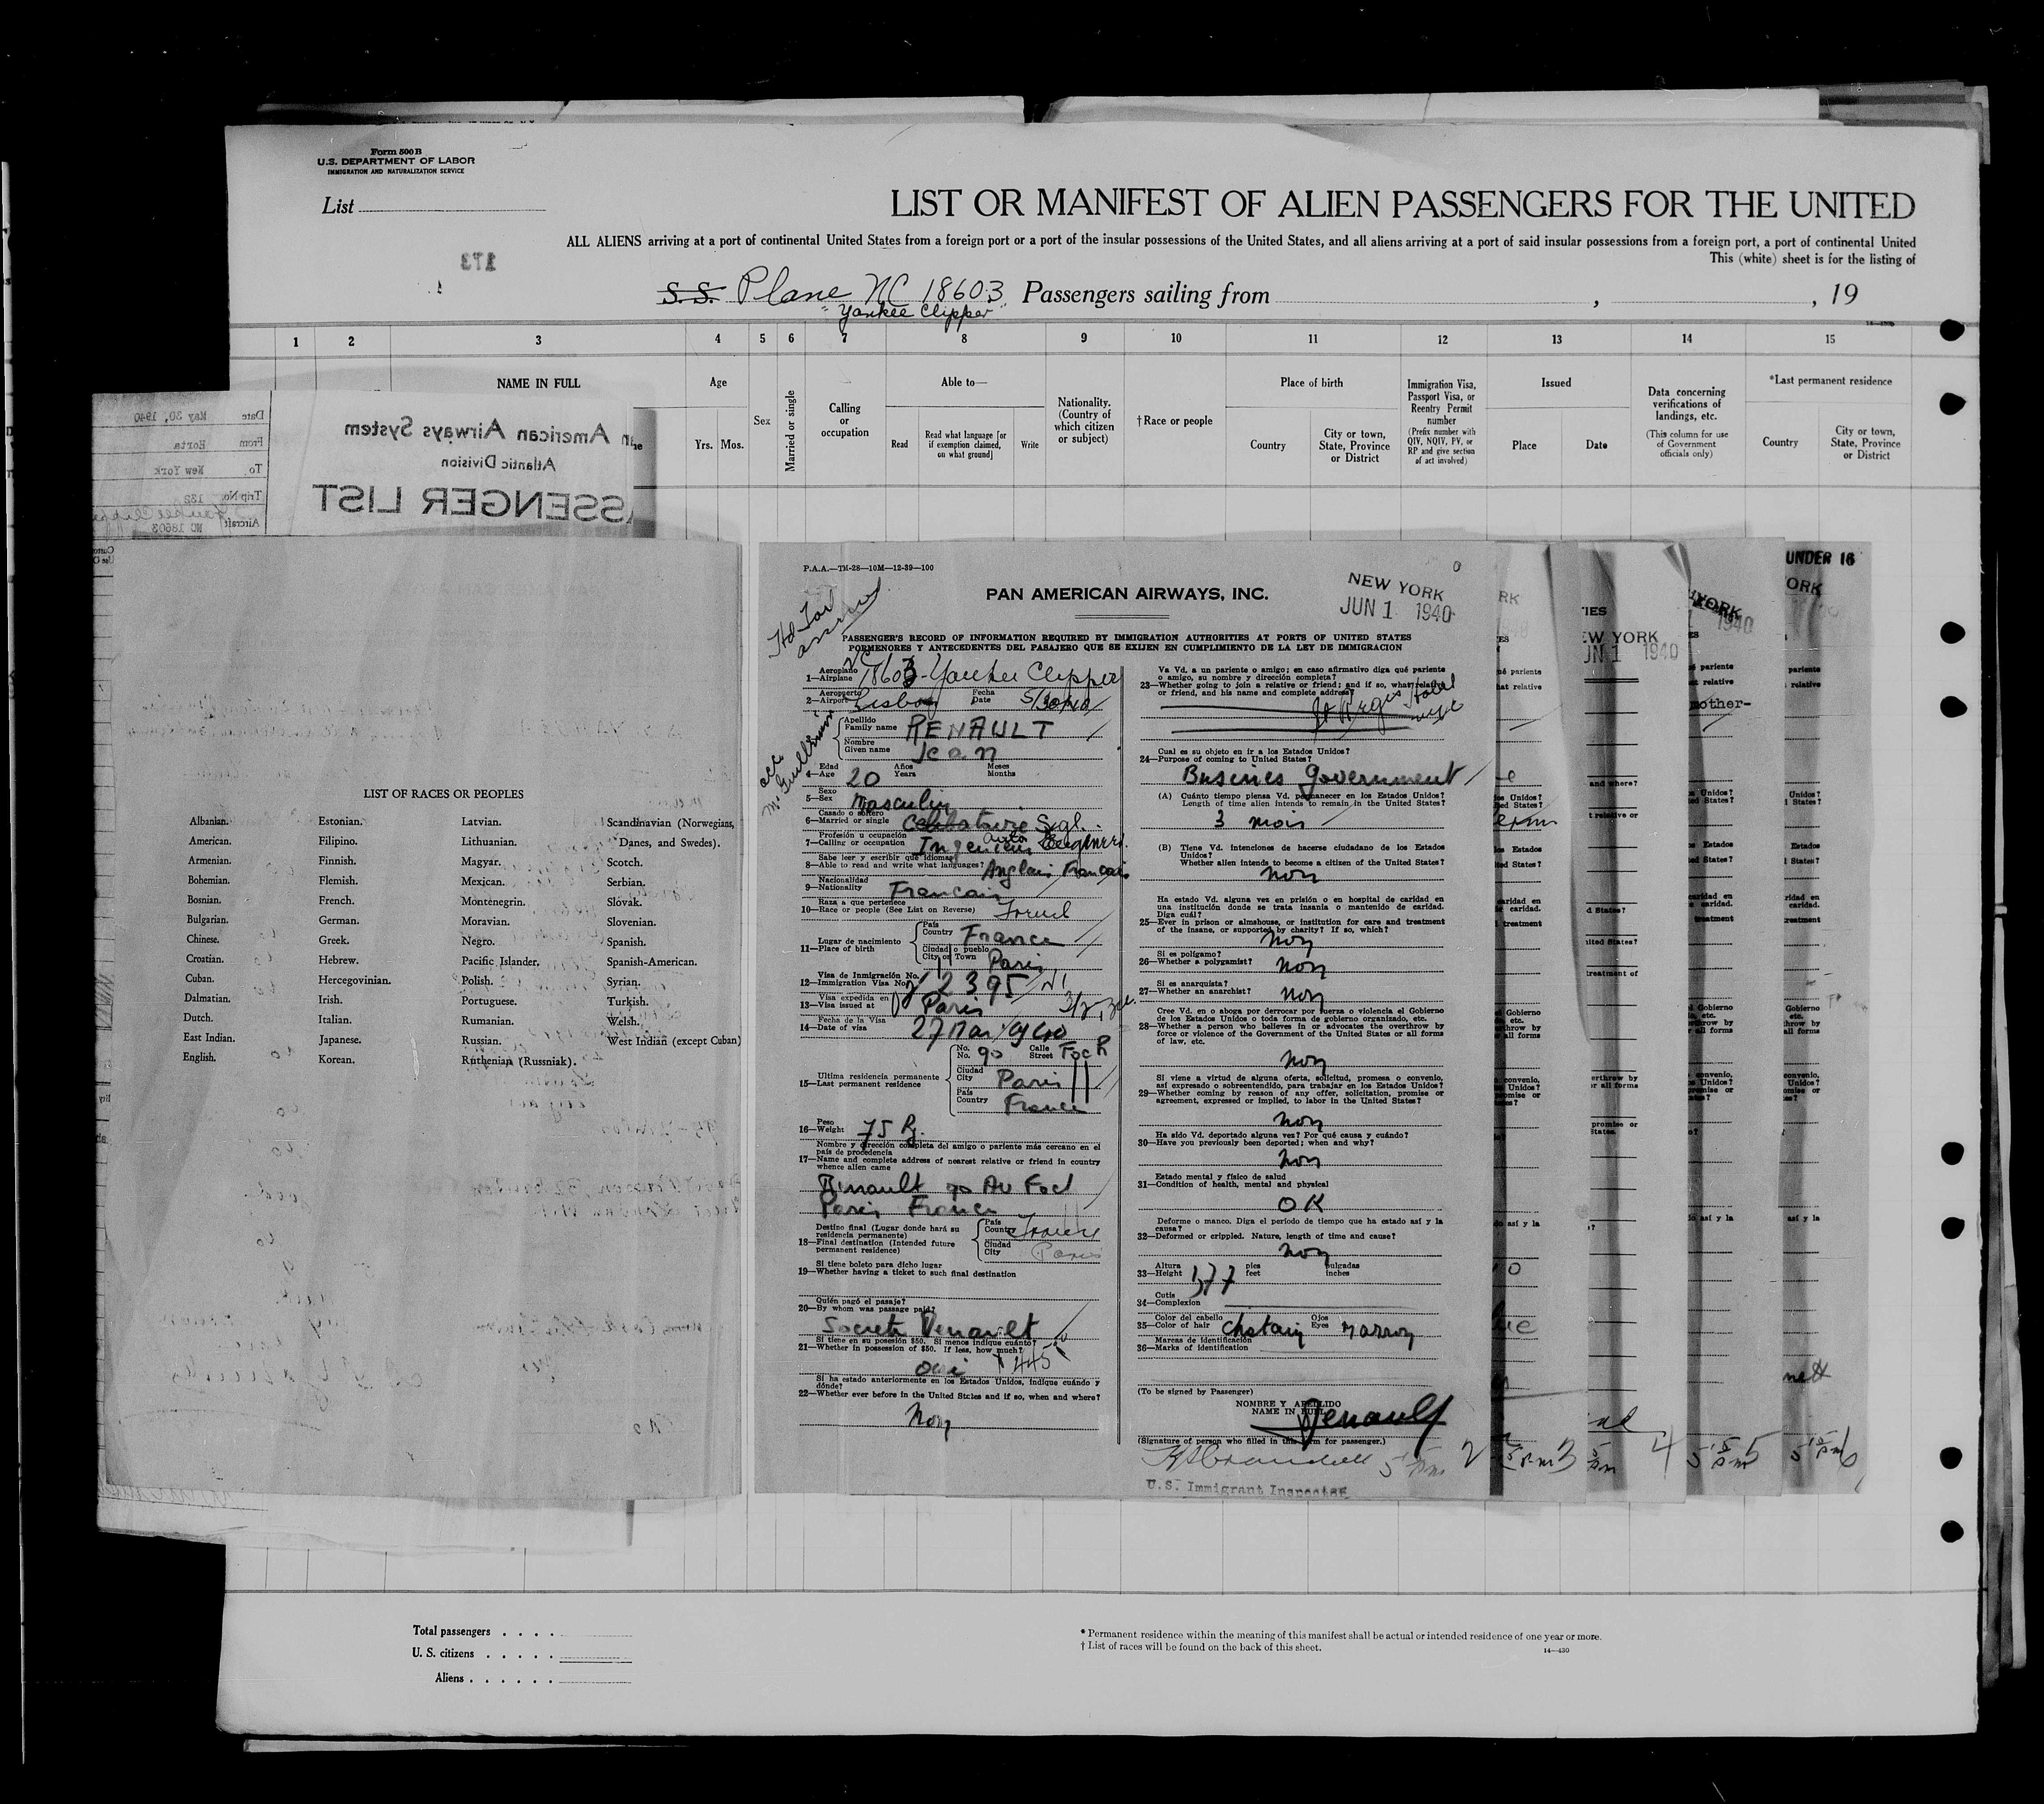 Form 500 B
U.S. DEPARTMENT OF LABOR
IMMIGRATION AND NATURALIZATION SERVICE
List
LIST OR MANIFEST OF ALIEN PASSENGERS FOR THE UNITED
ALL ALIENS arriving at a port of continental United States from a foreign port or a port of the insular possessions of the United States, and all aliens arriving at a port of said insular possessions from a foreign port, a port of continental United
This (white) sheet is for the listing of
173
S.S. Plane NC 18603 Passengers sailing from , , 19
"Yankee Clipper"
1 2 3 4 5 6 7 8 9 10 11 12 13 14 15
NAME IN FULL
Age
Yrs. Mos.
Sex
Married or single
Calling
or
occupation
Able to—
Read
Read what language [or
if exemption claimed,
on what ground]
Write
Nationality.
(Country of
which citizen
or subject)
†Race or people
Place of birth
Country
City or town,
State, Province
or District
Immigration Visa,
Passport Visa, or
Reentry Permit
number
(Prefix number with
QIV, NQIV, PV, or
RP and give section
of act involved)
Issued
Place
Date
Data concerning
verifications of
landings, etc.
(This column for use
of Government
officials only)
*Last permanent residence
Country
City or town,
State, Province
or District
Date May 30, 1940
From Horta
To New York
Trip No. 132
Aircraft Yankee Clipper
NC 18603
American Airways System
Atlantic Division
SSENGER LIST
LIST OF RACES OR PEOPLES
Albanian. Estonian. Latvian. Scandinavian (Norwegians,
American. Filipino. Lithuanian. Danes, and Swedes).
Armenian. Finnish. Magyar. Scotch.
Bohemian. Flemish. Mexican. Serbian.
Bosnian. French. Montenegrin. Slovak.
Bulgarian. German. Moravian. Slovenian.
Chinese. Greek. Negro. Spanish.
Croatian. Hebrew. Pacific Islander. Spanish-American.
Cuban. Hercegovinian. Polish. Syrian.
Dalmatian. Irish. Portuguese. Turkish.
Dutch. Italian. Rumanian. Welsh.
East Indian. Japanese. Russian. West Indian (except Cuban)
English. Korean. Ruthenian (Russniak).
P.A.A.—TM-28—10M—12-39—100
PAN AMERICAN AIRWAYS, INC.
NEW YORK
JUN 1 1940
PASSENGER'S RECORD OF INFORMATION REQUIRED BY IMMIGRATION AUTHORITIES AT PORTS OF UNITED STATES
PORMENORES Y ANTECEDENTES DEL PASAJERO QUE SE EXIJEN EN CUMPLIMIENTO DE LA LEY DE IMMIGRACION
Aeroplano
1—Airplane NC 18603 - Yankee Clipper
Aeropuerto Fecha
2—Airport Lisbon Date 5/30/40
Apellido
Family name RENAULT
Nombre
Given name Jean
Edad Años Meses
4—Age 20 Years Months
Sexo
5—Sex Masculin
Casado o soltero
6—Married or single Celibataire Sgl.
Profesión u ocupación
7—Calling or occupation Ingenieur auto Engineer
Sabe leer y escribir que idiomas
8—Able to read and write what languages? Anglais Francais
Nacionalidad
9—Nationality Francais
Raza a que pertenece
10—Race or people (See List on Reverse) French
País
Country France
Lugar de nacimiento
11—Place of birth
Ciudad o pueblo
City or Town Paris
Visa de Inmigración No.
12—Immigration Visa No. 2395
Visa expedida en
13—Visa issued at Paris
Fecha de la Visa
14—Date of visa 27 Mai 1940
No. Calle
No. 90 Street Foch
Ultima residencia permanente
15—Last permanent residence
Ciudad
City Paris
País
Country France
Peso
16—Weight 75 Kg.
Nombre y dirección completa del amigo o pariente más cercano en el
país de procedencia
17—Name and complete address of nearest relative or friend in country
whence alien came
Renault 90 Av Foch
Paris France
Destino final (Lugar donde hará su
residencia permanente)
18—Final destination (Intended future
permanent residence)
País
Country France
Ciudad
City Paris
Si tiene boleto para dicho lugar
19—Whether having a ticket to such final destination
Quién pagó el pasaje?
20—By whom was passage paid?
Societe Renault
Si tiene en su posesión $50. Si menos indique cuánto?
21—Whether in possession of $50. If less, how much?
oui $445
Si ha estado anteriormente en los Estados Unidos, indique cuándo y
dónde?
22—Whether ever before in the United States and if so, when and where?
Non
Va Vd. a un pariente o amigo; en caso afirmativo diga qué pariente
o amigo, su nombre y dirección completa?
23—Whether going to join a relative or friend; and if so, what relative
or friend, and his name and complete address?
St Regis Hotel
nyc
Cual es su objeto en ir a los Estados Unidos?
24—Purpose of coming to United States?
Busines Government
(A) Cuánto tiempo piensa Vd. permanecer en los Estados Unidos?
Length of time alien intends to remain in the United States?
3 mois
(B) Tiene Vd. intenciones de hacerse ciudadano de los Estados
Unidos?
Whether alien intends to become a citizen of the United States?
non
Ha estado Vd. alguna vez en prisión o en hospital de caridad en
una institución donde se trata insania o mantenido de caridad.
Diga cuál?
25—Ever in prison or almshouse, or institution for care and treatment
of the insane, or supported by charity? If so, which?
non
Si es polígamo?
26—Whether a polygamist? non
Si es anarquista?
27—Whether an anarchist? non
Cree Vd. en o aboga por derrocar por fuerza o violencia el Gobierno
de los Estados Unidos o toda forma de gobierno organizado, etc.
28—Whether a person who believes in or advocates the overthrow by
force or violence of the Government of the United States or all forms
of law, etc.
non
Si viene a virtud de alguna oferta, solicitud, promesa o convenio,
así expresado o sobreentendido, para trabajar en los Estados Unidos?
29—Whether coming by reason of any offer, solicitation, promise or
agreement, expressed or implied, to labor in the United States?
non
Ha sido Vd. deportado alguna vez? Por qué causa y cuándo?
30—Have you previously been deported; when and why?
non
Estado mental y físico de salud
31—Condition of health, mental and physical
OK
Deforme o manco. Diga el período de tiempo que ha estado así y la
causa?
32—Deformed or crippled. Nature, length of time and cause?
non
Altura pies pulgadas
33—Height 1,77 feet inches
Cutis
34—Complexion
Color del cabello Ojos
35—Color of hair chatain Eyes marron
Marcas de identificación
36—Marks of identification
(To be signed by Passenger)
NOMBRE Y APELLIDO
NAME IN FULL Renault
(Signature of person who filled in this form for passenger.)
U.S. Immigrant Inspector
UNDER 16
mother-
Total passengers
U. S. citizens
Aliens
* Permanent residence within the meaning of this manifest shall be actual or intended residence of one year or more.
† List of races will be found on the back of this sheet.
14—430